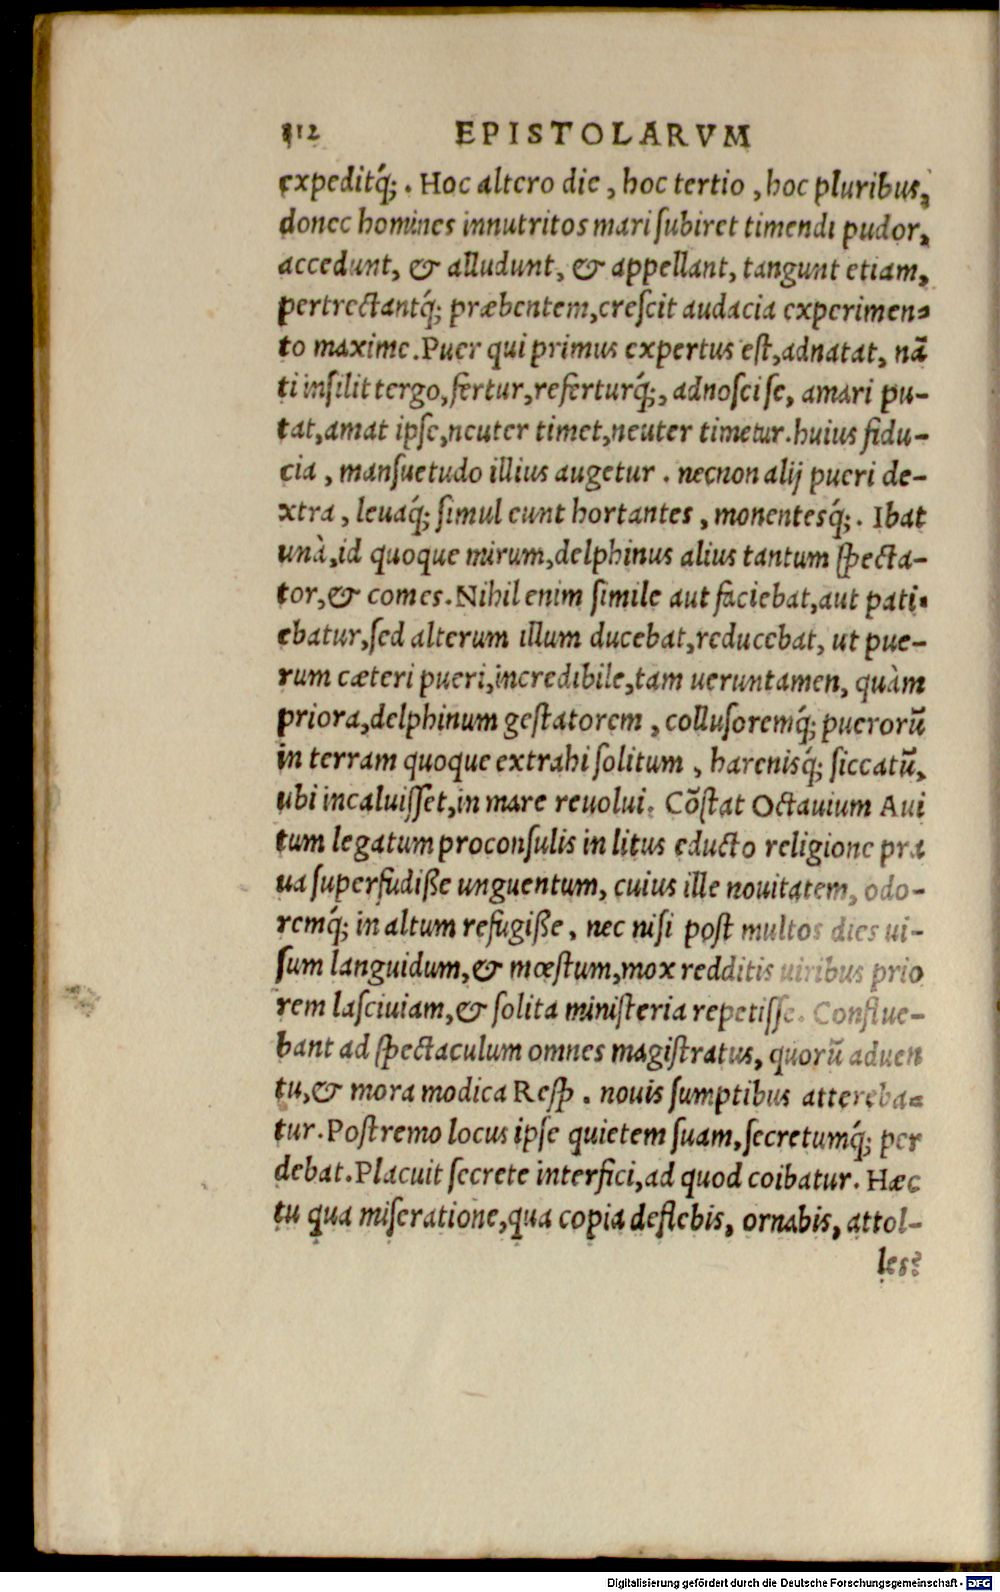 312 EPISTOLARVM
expeditq́;. Hoc altero die, hoc tertio, hoc pluribus,
donec homines innutritos mari ſubiret timendi pudor,
accedunt, & alludunt, & appellant, tangunt etiam,
pertrectantq́; præbentem, creſcit audacia experimen-
to maxime. Puer qui primus expertus eſt, adnatat, nã
ti inſilit tergo, fertur, referturq́;, adnoſci ſe, amari pu-
tat, amat ipſe, neuter timet, neuter timetur. huius fidu-
cia, manſuetudo illius augetur. necnon alij pueri de-
xtra, leuaq́; ſimul eunt hortantes, monentesq́;. Ibat
unà, id quoque mirum, delphinus alius tantum ſpecta-
tor, & comes. Nihil enim ſimile aut faciebat, aut pati-
ebatur, ſed alterum illum ducebat, reducebat, ut pue-
rum cæteri pueri, incredibile, tam ueruntamen, quàm
priora, delphinum geſtatorem, colluſoremq́; puerorũ
in terram quoque extrahi ſolitum, harenisq́; ſiccatũ,
ubi incaluiſſet, in mare reuolui. Cõſtat Octauium Aui
tum legatum proconſulis in litus educto religione pra
ua ſuperfudiße unguentum, cuius ille nouitatem, odo-
remq́; in altum refugiße, nec niſi poſt multos dies ui-
ſum languidum, & mœſtum, mox redditis uiribus prio
rem laſciuiam, & ſolita miniſteria repetiſſe. Conflue-
bant ad ſpectaculum omnes magiſtratus, quorũ aduen
tu, & mora modica Reſp. nouis ſumptibus attereba-
tur. Poſtremo locus ipſe quietem ſuam, ſecretumq́; per
debat. Placuit ſecrete interfici, ad quod coibatur. Hæc
tu qua miſeratione, qua copia deflebis, ornabis, attol-
les?
Digitalisierung gefördert durch die Deutsche Forschungsgemeinschaft - DFG